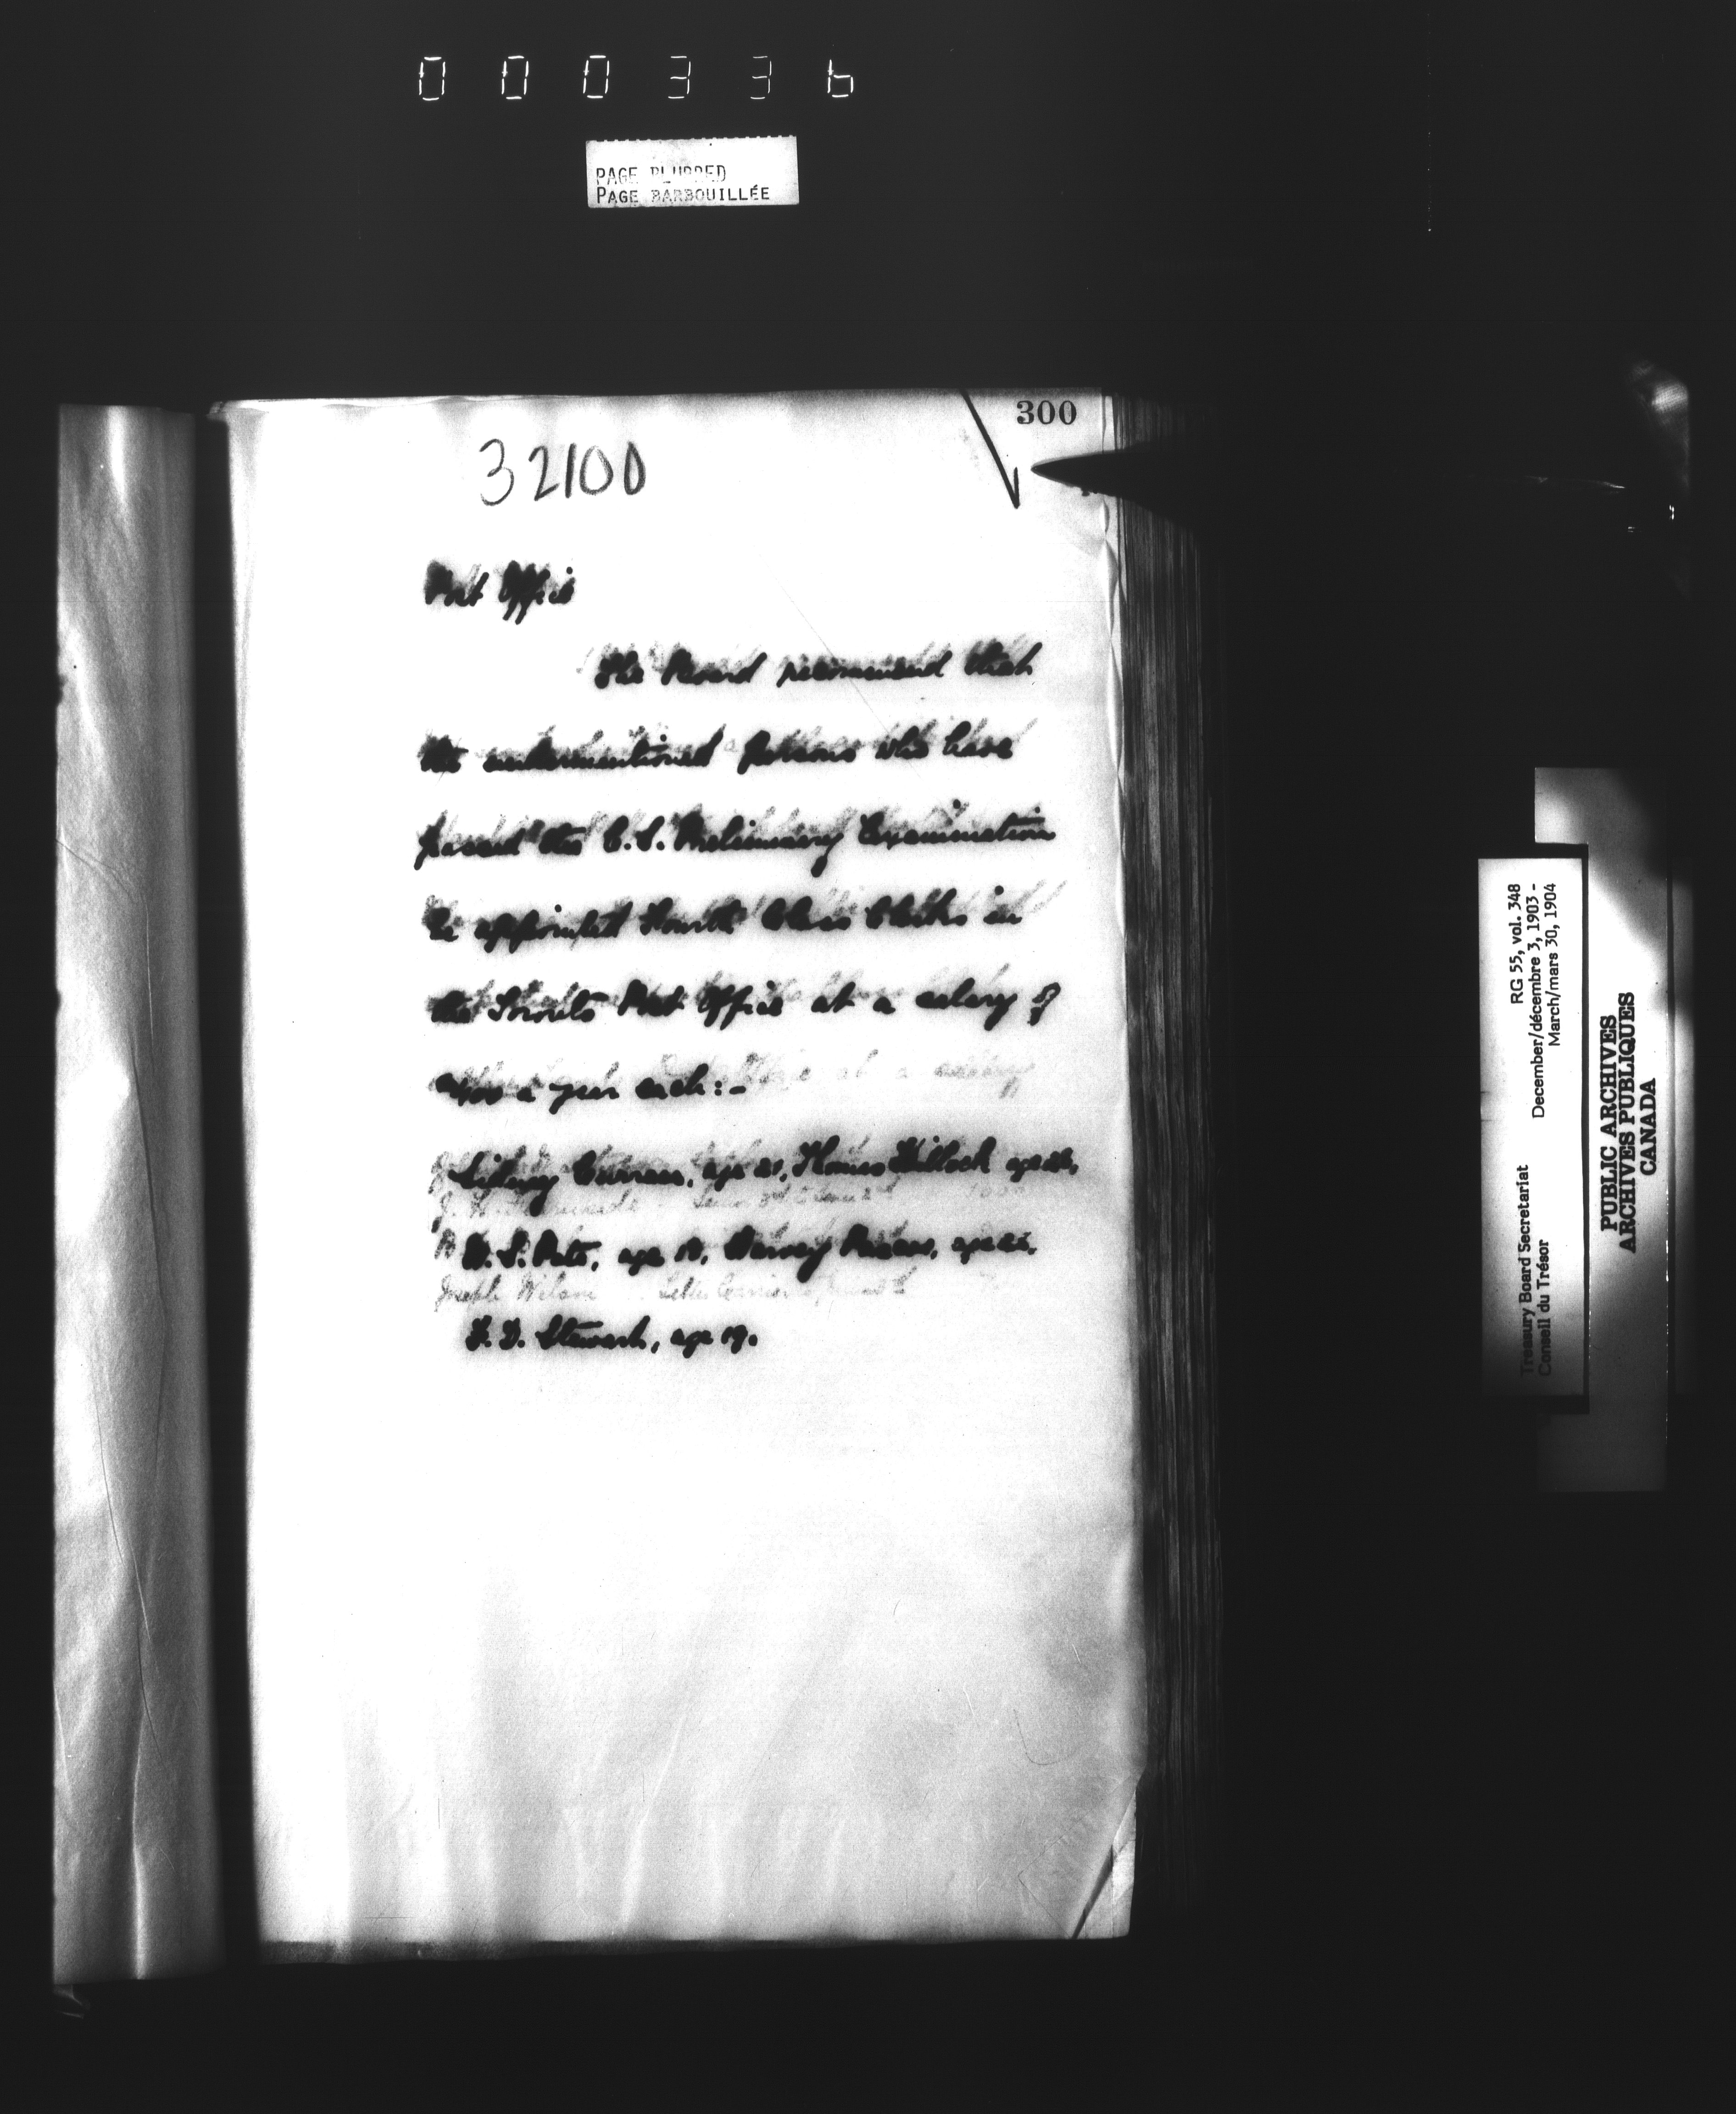 000336
PAGE BLURRED
PAGE BARBOUILLÉE
300
32100
Post Office
The Board recommend that
the undermentioned persons who have
passed the C.S. Preliminary Examination
be appointed Fourth Class Clerks in
the Toronto Post Office at a salary of
$400 a year each:-
Sidney Curran, age 21, Thomas Hillock age
W. S. Pate, age 18, Harvey age
F. D. Stewart, age 19.
Joseph Wilson Letter Carrier
RG 55, vol. 348
December/décembre 3, 1903 -
March/mars 30, 1904
Treasury Board Secretariat
Conseil du Trésor
PUBLIC ARCHIVES
ARCHIVES PUBLIQUES
CANADA